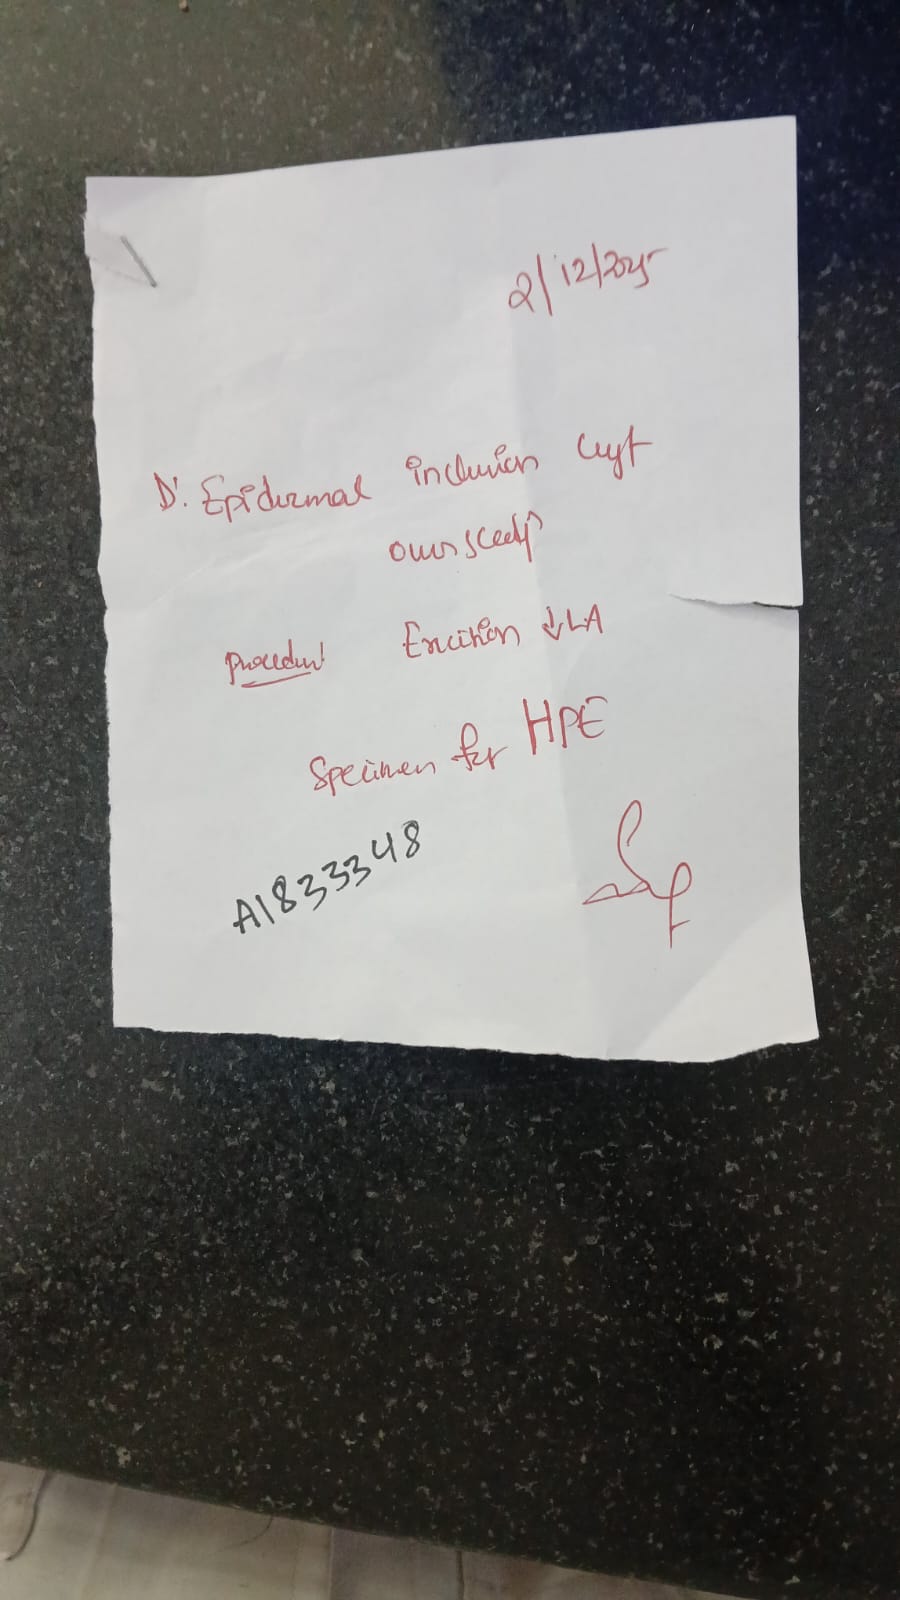 2/12/2025
D: Epidermal inclusion cyst
over scalp
Procedure Excision ↓ LA
Specimen for HPE
A1833348